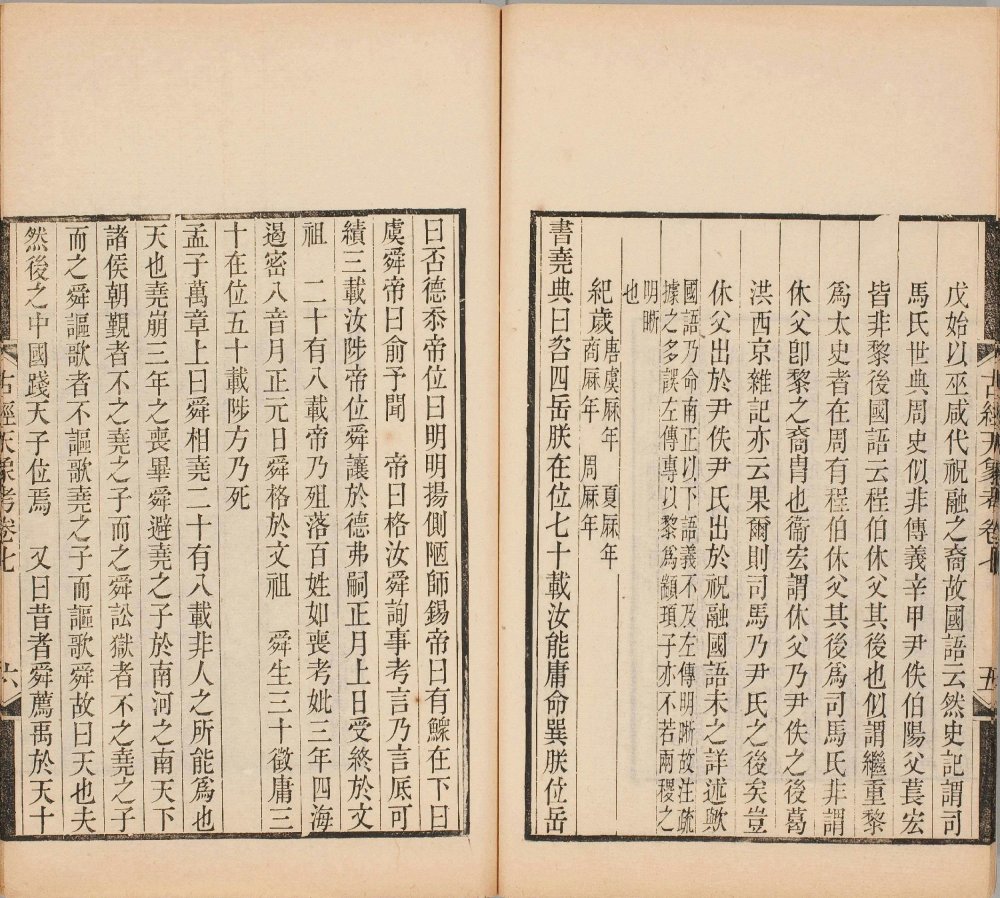 戊始以巫咸代祝融之裔故國語云然史記謂司
馬氏世典周史似非傳義辛甲尹佚伯陽父萇宏
皆非黎後國語云程伯休父其後也似謂繼重黎
爲太史者在周有程伯休父其後爲司馬氏非謂
休父卽黎之裔胄也衞宏謂休父乃尹佚之後葛
洪西京雜記亦云果爾則司馬乃尹氏之後矣豈
休父出於尹佚尹氏出於祝融國語未之詳述歟
國語乃命南正以下語義不及左傳明晰故注疏
據之多誤左傳專以黎爲顓頊子亦不若兩稷之
明晰
也
紀歲
唐虞厤年 夏厤年
商厤年 周厤年
書堯典曰咨四岳朕在位七十載汝能庸命巽朕位岳
古經天象考卷七 五
曰否德忝帝位曰明明揚側陋師錫帝曰有鰥在下曰
虞舜帝曰俞予聞 帝曰格汝舜詢事考言乃言厎可
績三載汝陟帝位舜讓於德弗嗣正月上日受終於文
祖 二十有八載帝乃殂落百姓如喪考妣三年四海
遏密八音月正元日舜格於文祖 舜生三十徵庸三
十在位五十載陟方乃死
孟子萬章上曰舜相堯二十有八載非人之所能爲也
天也堯崩三年之喪畢舜避堯之子於南河之南天下
諸侯朝覲者不之堯之子而之舜訟獄者不之堯之子
而之舜謳歌者不謳歌堯之子而謳歌舜故曰天也夫
然後之中國踐天子位焉 又曰昔者舜薦禹於天十
古經天象考卷七 六